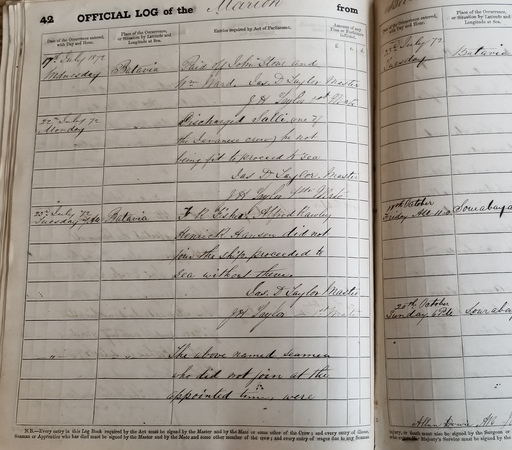 42 OFFICIAL LOG of the Marion from
Date of the Occurrence entered, with Day and Hour.
Place of the Occurrence, or Situation by Latitude and Longitude at Sea.
Entries required by Act of Parliament.
Amount of any Fine or Forfeiture inflicted.
17th July 1872
Wednesday
Batavia
Paid off John Stone and
Wm Ward. Jas. D Taylor Master
J H Taylor 1st Mate
22nd July 72
Monday
Discharged Sallie one of
the Javanese crew, he not
being fit to proceed to sea
Jas D Taylor Master
J H Taylor 1st Mate
23rd July 72
Tuesday
Batavia
F. K. Fisher, Alfred Rawley
Henrick Hansen did not
join the ship, proceeded to
sea without them
Jas. D Taylor Master
J H Taylor 1st Mate
The above named seamen
who did not join at the
appointed time, were
N.B.—Every entry in this Log Book required by the Act must be signed by the Master and by the Mate or some other of the Crew; and every entry of Illness,
Seaman or Apprentice who has died must be signed by the Master and by the Mate and some other member of the crew; and every entry of wages due to any Seaman
Date of the Occurrence entered, with Day and Hour.
Place of the Occurrence, or Situation by Latitude and Longitude at Sea.
23rd July 72
Tuesday
Batavia
October
Friday
Sourabaya
20th October
Sunday
Sourabay